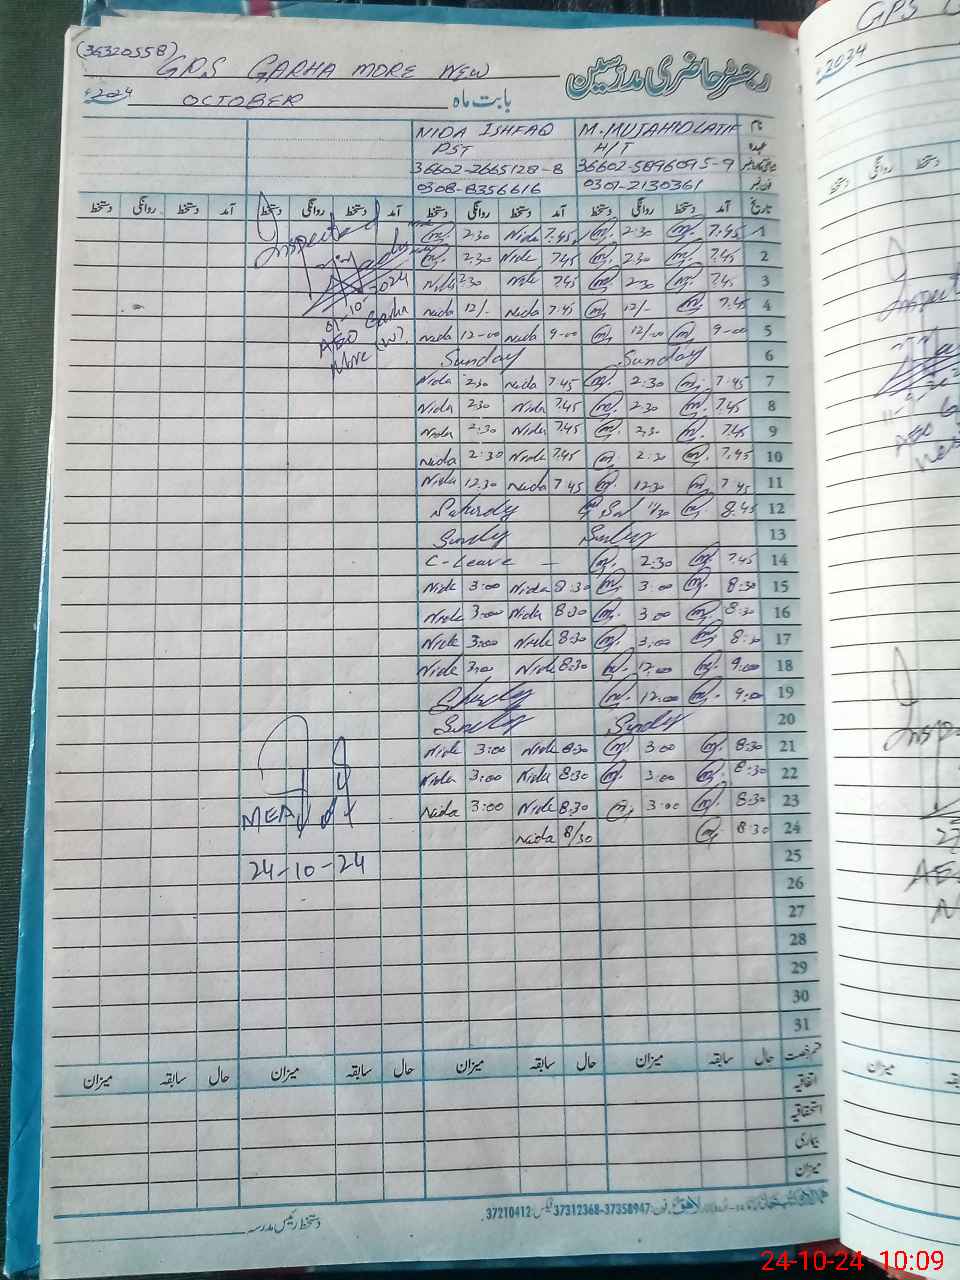 (36320558)
GPS GARHA MORE NEW رجسٹر حاضری مدرسین
2024ء OCTOBER بابت ماہ
NIDA ISHFAQ M. MUJAHID LATIF نام
PST H/T عہدہ
36602-2665128-8 36602-5896095-9
0308-8356616 0301-2130361
دستخط روانگی دستخط آمد دستخط روانگی دستخط آمد دستخط روانگی دستخط آمد دستخط روانگی دستخط آمد تاریخ
Inspected
01-10-2024
AEO Garha
More (W)
2:30 Nida 7.45 m. 2:30 m. 7.45 1
m. 2:30 Nida 7.45 m. 2:30 m. 7.45 2
Nida 2:30 Nida 7.45 m. 2:30 m. 7.45 3
Nida 12/- Nida 7.45 m 12/- m 7.45 4
Nida 12-00 Nida 9-00 m 12/00 m 9-00 5
Sunday Sunday 6
Nida 2:30 Nida 7.45 m. 2:30 m. 7.45 7
Nida 2:30 Nida 7.45 m. 2:30 m. 7.45 8
Nida 2:30 Nida 7.45 m. 2:30 m. 7.45 9
Nida 2:30 Nida 7.45 m. 2:30 m. 7.45 10
Nida 12:30 Nida 7.45 m 12:30 m. 7.45 11
Saturdy 11/30 m. 8.45 12
Sundy Sundy 13
C-Leave — m. 2:30 m. 7.45 14
Nida 3:00 Nida 8:30 m. 3:00 m. 8:30 15
Nida 3:00 Nida 8:30 m. 3:00 m. 8:30 16
Nida 3:00 Nida 8:30 m. 3:00 m. 8:30 17
Nida 3:00 Nida 8:30 m. 12:00 m. 9:00 18
m. 12:00 m. 9:00 19
Sundy Sunday 20
Nida 3:00 Nida 8:30 m 3:00 m. 8:30 21
Nida 3:00 Nida 8:30 m. 3:00 m. 8:30 22
Nida 3:00 Nida 8:30 m. 3:00 m. 8:30 23
Nida 8/30 m. 8:30 24
MEA
24-10-24
25
26
27
28
29
30
31
میزان سابقہ حال میزان سابقہ حال میزان سابقہ حال میزان سابقہ حال قسم رخصت
اتفاقیہ
استحقاقیہ
بیماری
میزان
لاہور فون: 37358947-37312368 فیکس: 37210412
دستخط رئیس مدرسہ
GPS
2034
دستخط روانگی دستخط
Inspe
میزان
24-10-24 10:09